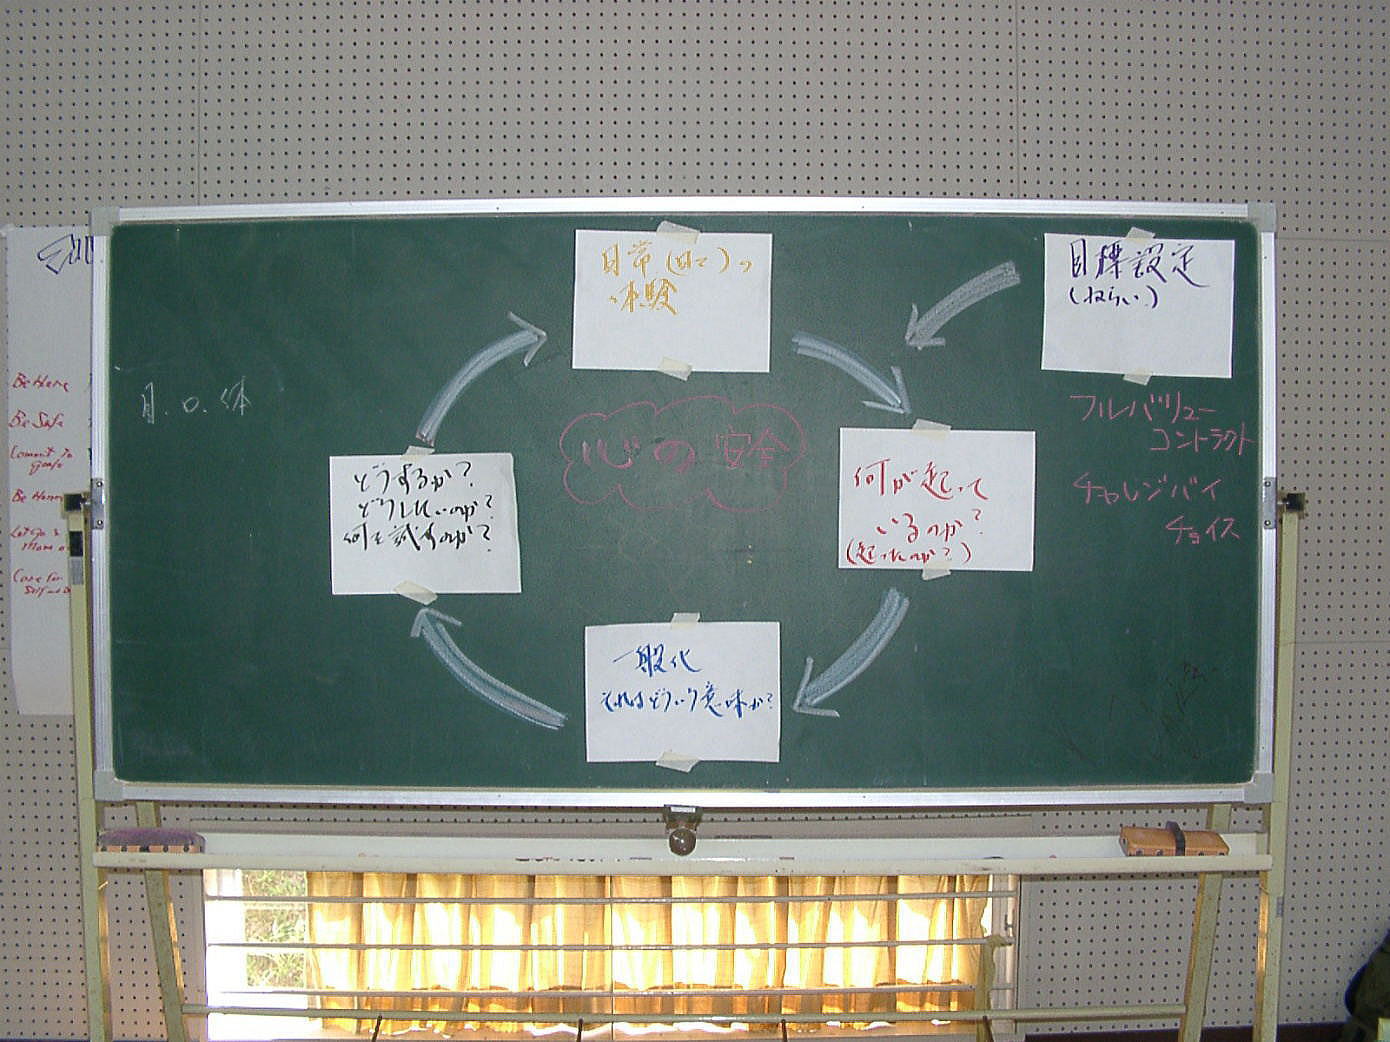 目標設定
(ねらい)
体験
フルバリュー
コントラクト
チャレンジバイ
チョイス
心の安全
何が起って
いるのか?
(起ったのか?)
一般化
それはどういう意味か?
どうするか?
どうしたいのか?
何を試すのか?
Be Here
Be Safe
Commit to
goals
Be
Let Go &
Care for